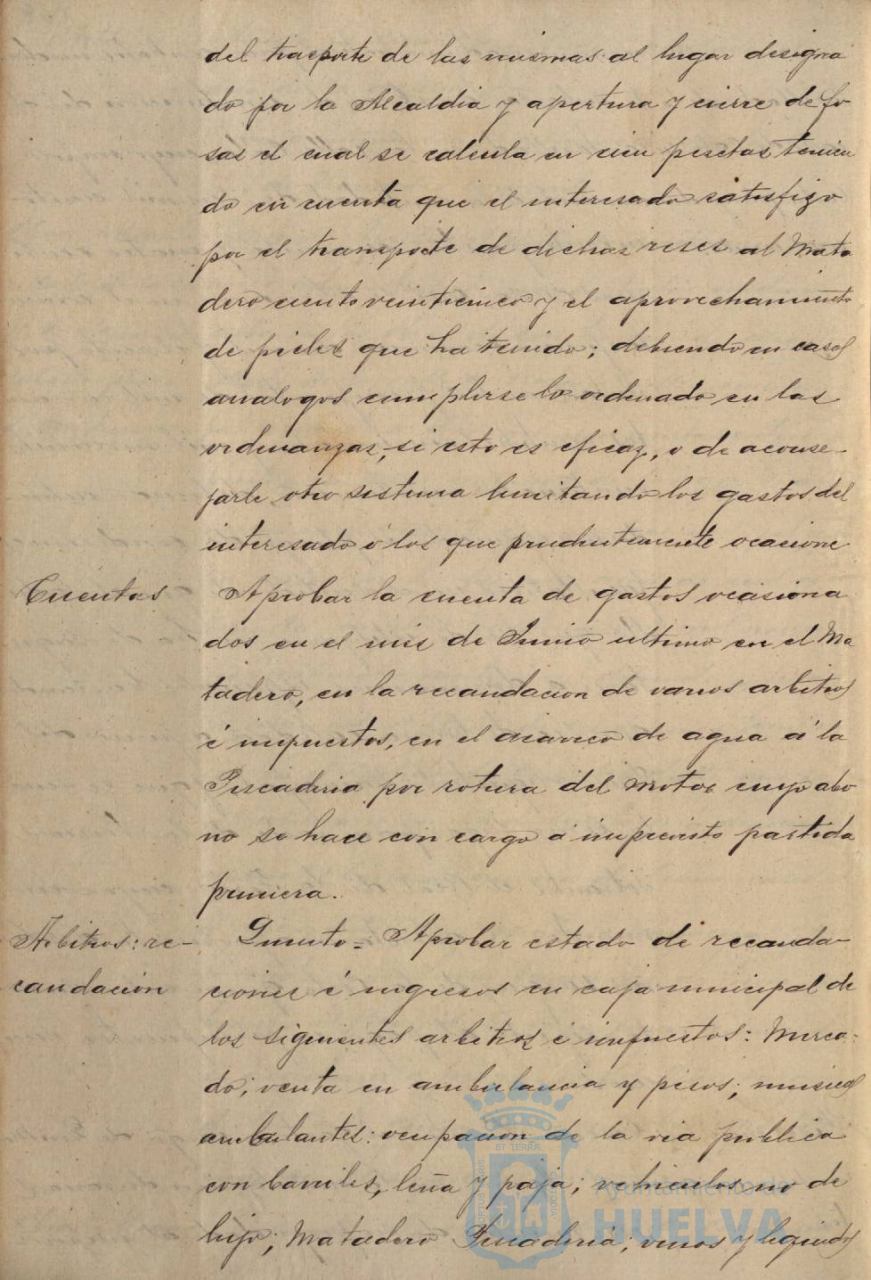 del trasporte de las mismas al lugar designa
do por la Alcaldia y apertura y cierre de fo
sas el cual se calcula en cien pesetas tenien
do en cuenta que el interesado satisfizo
por el transporte de dichas reses al Mata
dero ciento veinticinco y el aprovechamiento
de pieles que ha tenido; debiendo en casos
analogos cumplirse lo ordenado en las
ordenanzas, si esto es eficaz, o de aconse-
jarle otro sistema limitando los gastos del
interesado á los que prudentemente ocasione
Cuentas
Aprobar la cuenta de gastos ocasiona
dos en el mes de Junio ultimo en el Ma
tadero, en la recaudacion de varios arbitrios
é impuestos, en el acarreo de agua á la
Pescaderia por rotura del motor cuyo abo
no se hace con cargo á imprevisto partida
primera.
Arbitrios: re-
caudación
Quinto = Aprobar estado de recauda-
ciones é ingresos en caja municipal de
los siguientes arbitrios é impuestos: Merca-
do; venta en ambulancia y pisos; musicas
ambulantes: ocupacion de la via publica
con barriles, leña y paja; vehiculos no de
lujo; Matadero Pescaderia; vinos y liquidos
Ayuntamiento de
HUELVA